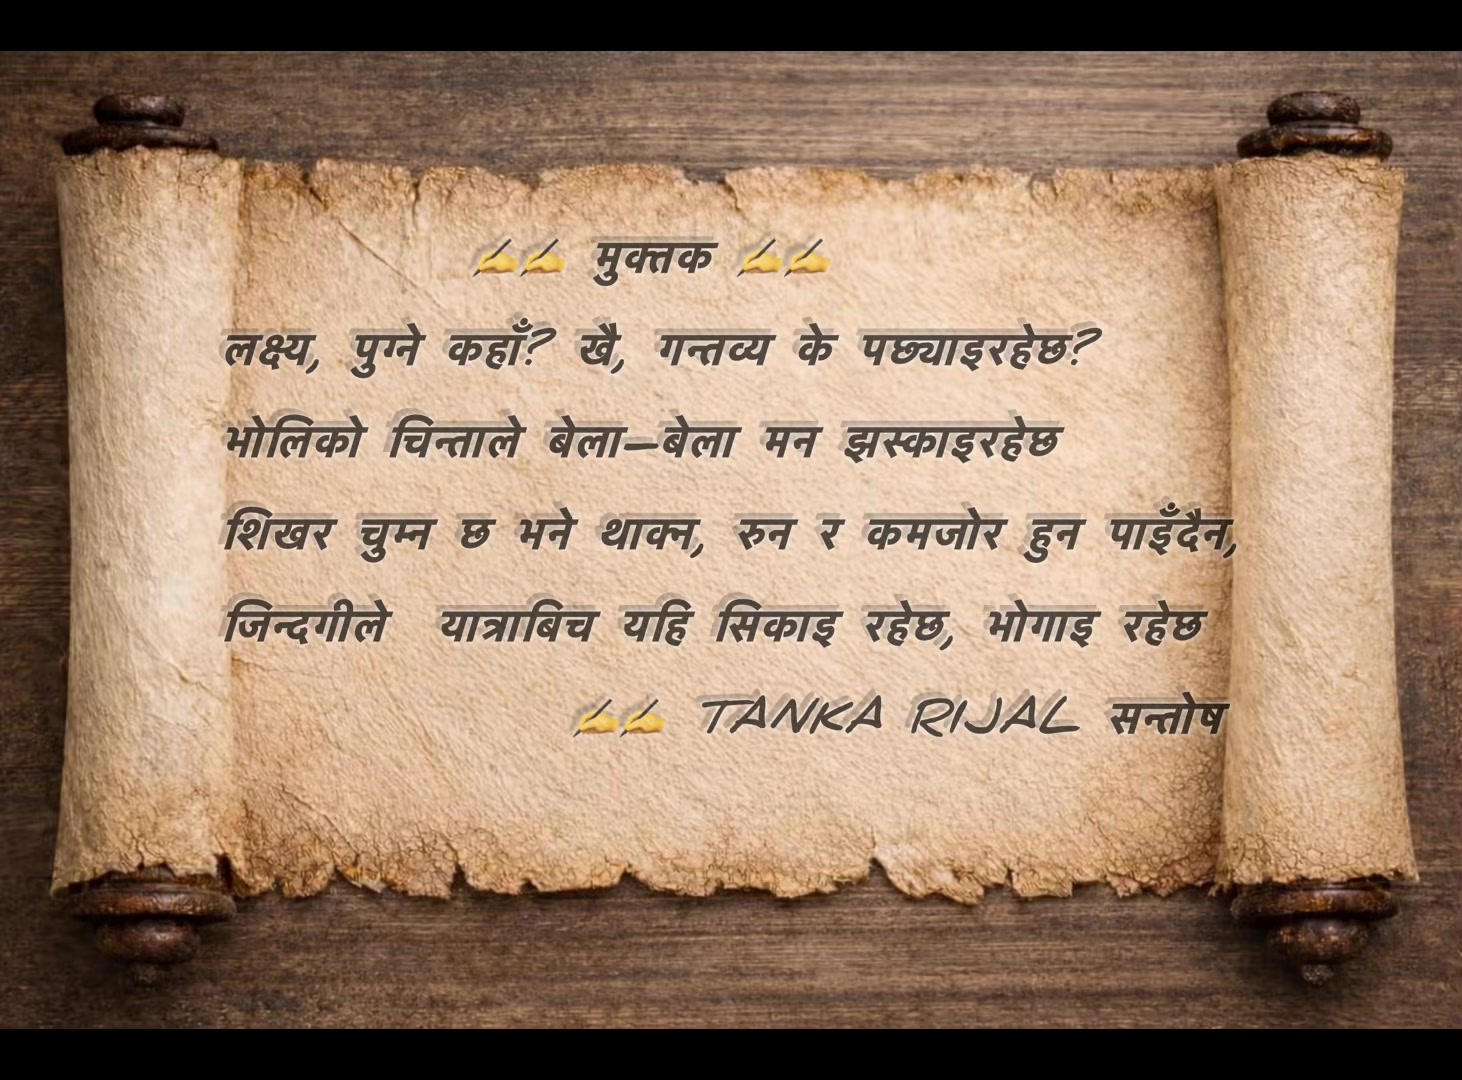 ✍️✍️ मुक्तक ✍️✍️
लक्ष्य, पुग्ने कहाँ? खै, गन्तव्य के पछ्याइरहेछ?
भोलिको चिन्ताले बेला–बेला मन झस्काइरहेछ
शिखर चुम्न छ भने थाक्न, रुन र कमजोर हुन पाइँदैन,
जिन्दगीले यात्राबिच यहि सिकाइ रहेछ, भोगाइ रहेछ
✍️✍️ TANKA RIJAL सन्तोष